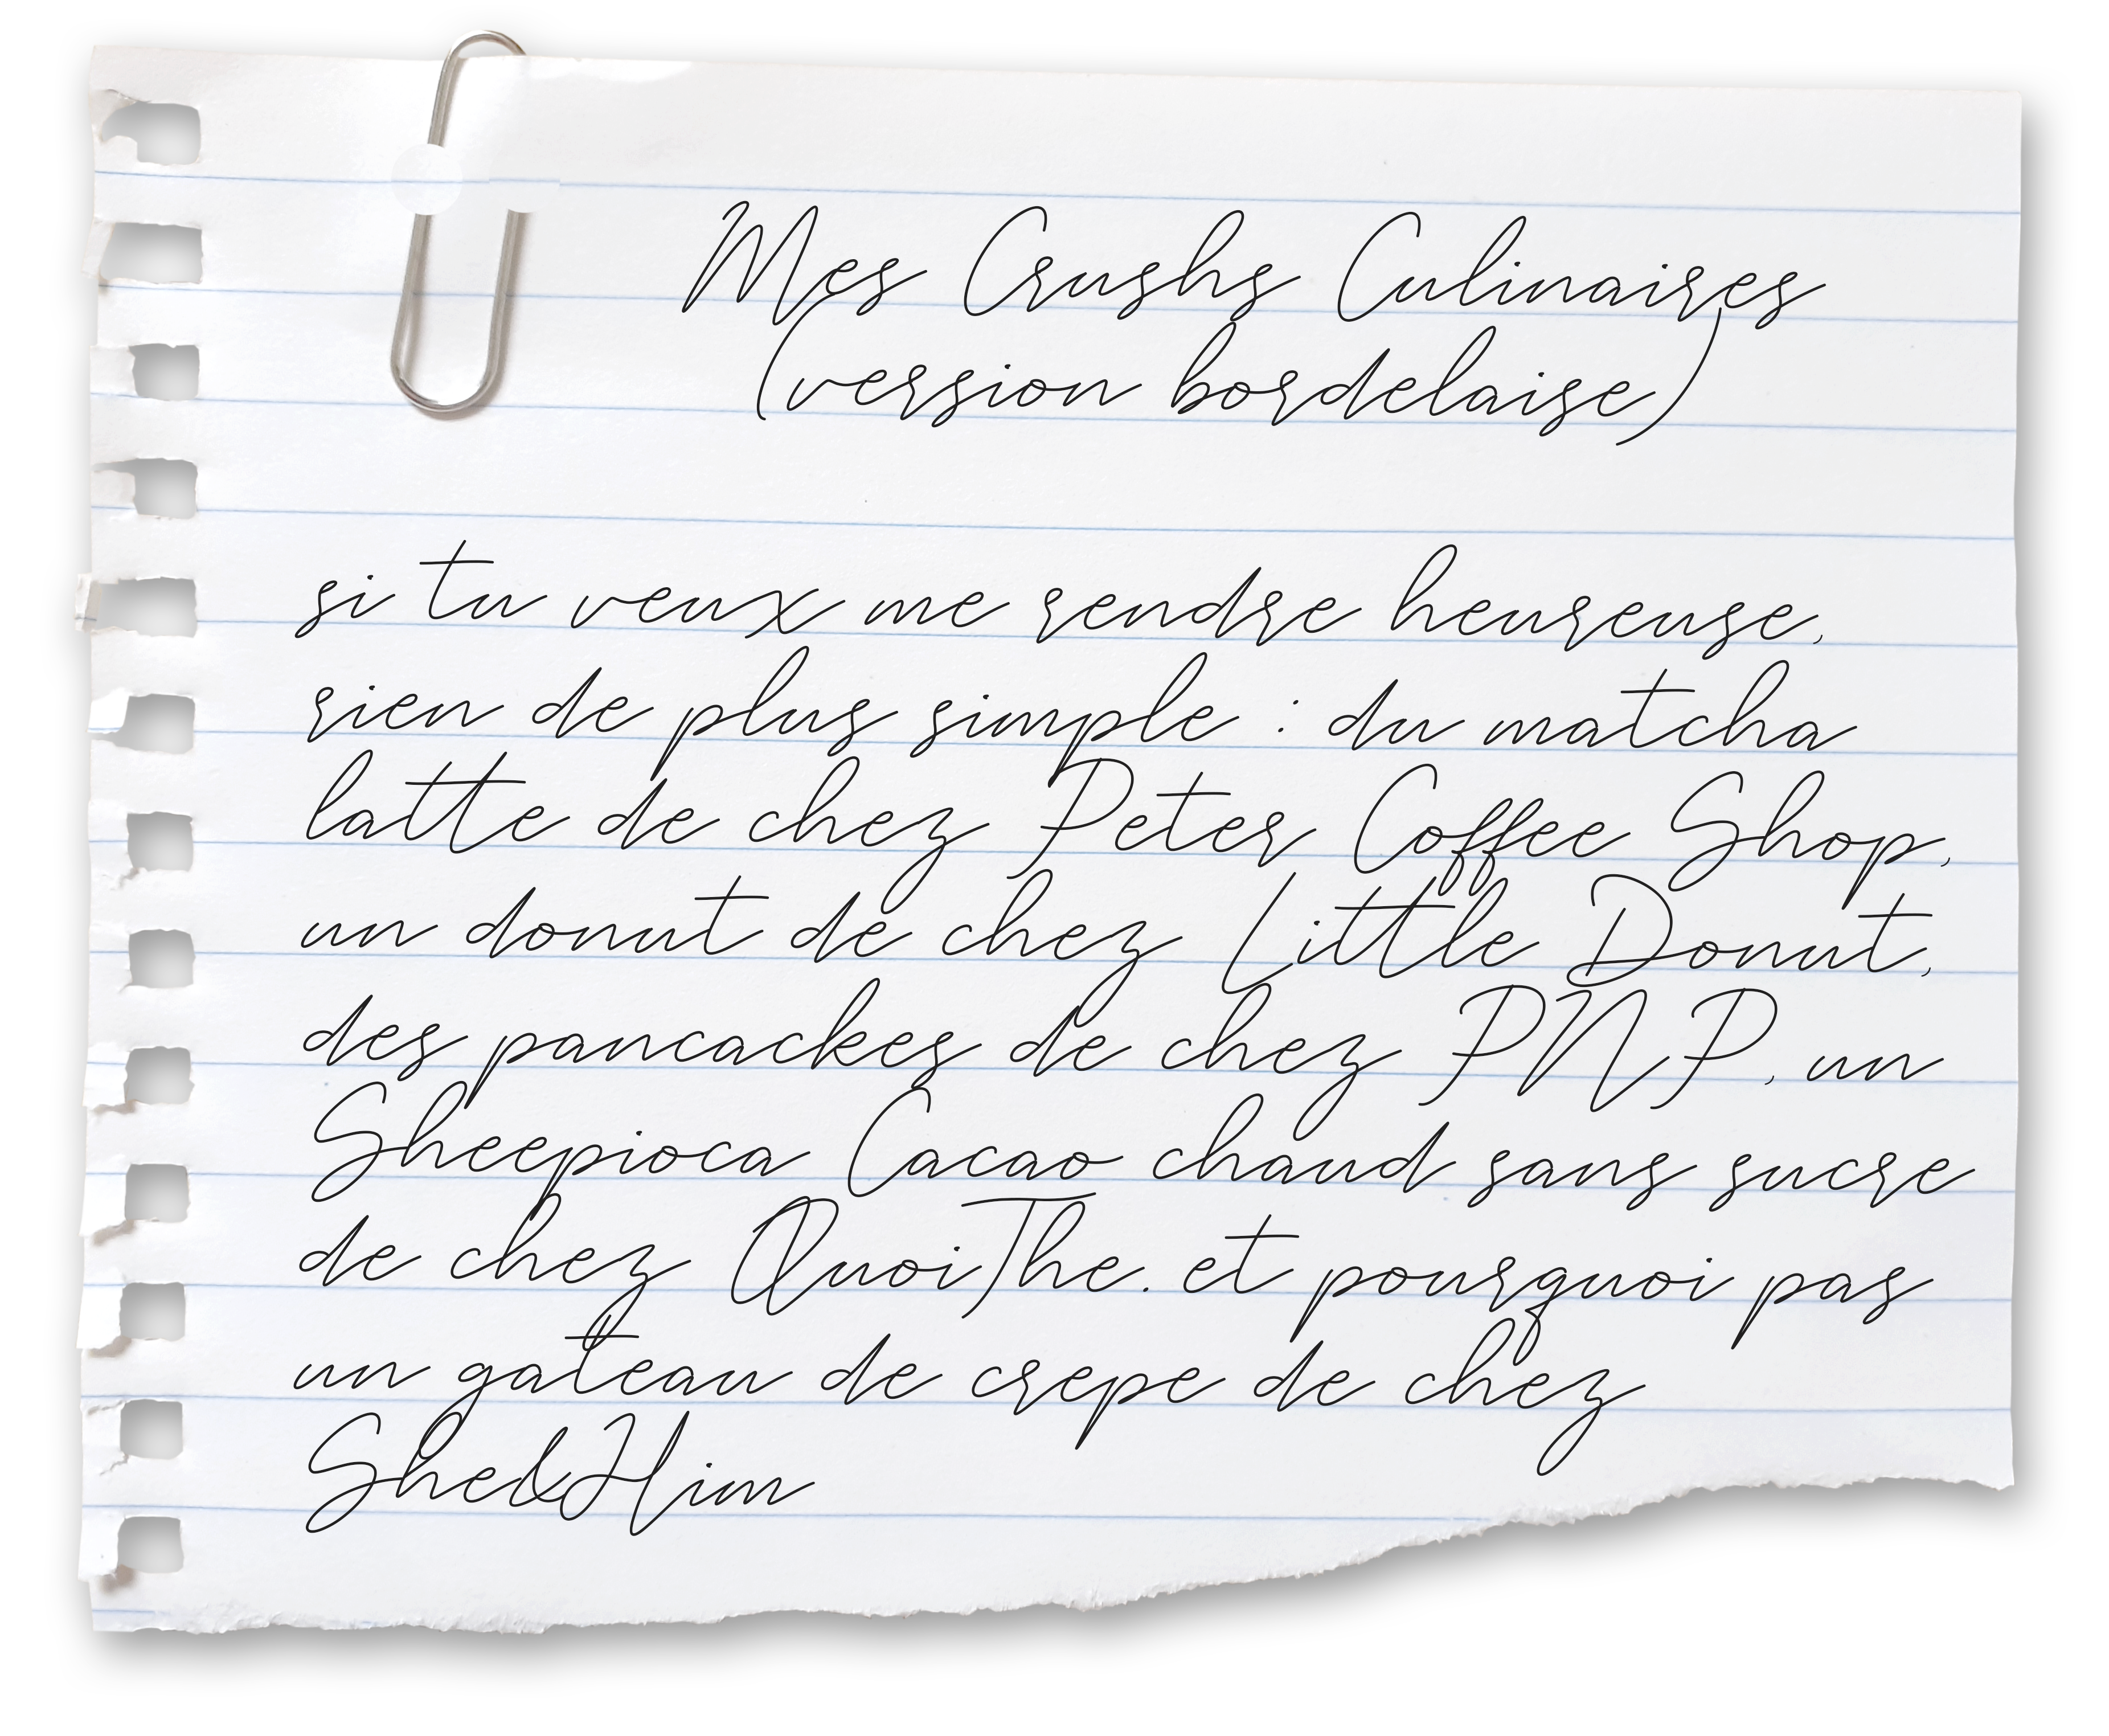 Mes Crushs Culinaires
(version bordelaise)
si tu veux me rendre heureuse,
rien de plus simple : du matcha
latte de chez Peter Coffee Shop,
un donut de chez Little Donut,
des pancackes de chez PNP, un
Sheepioca Cacao chaud sans sucre
de chez QuoiThe. et pourquoi pas
un gateau de crepe de chez
She&Him